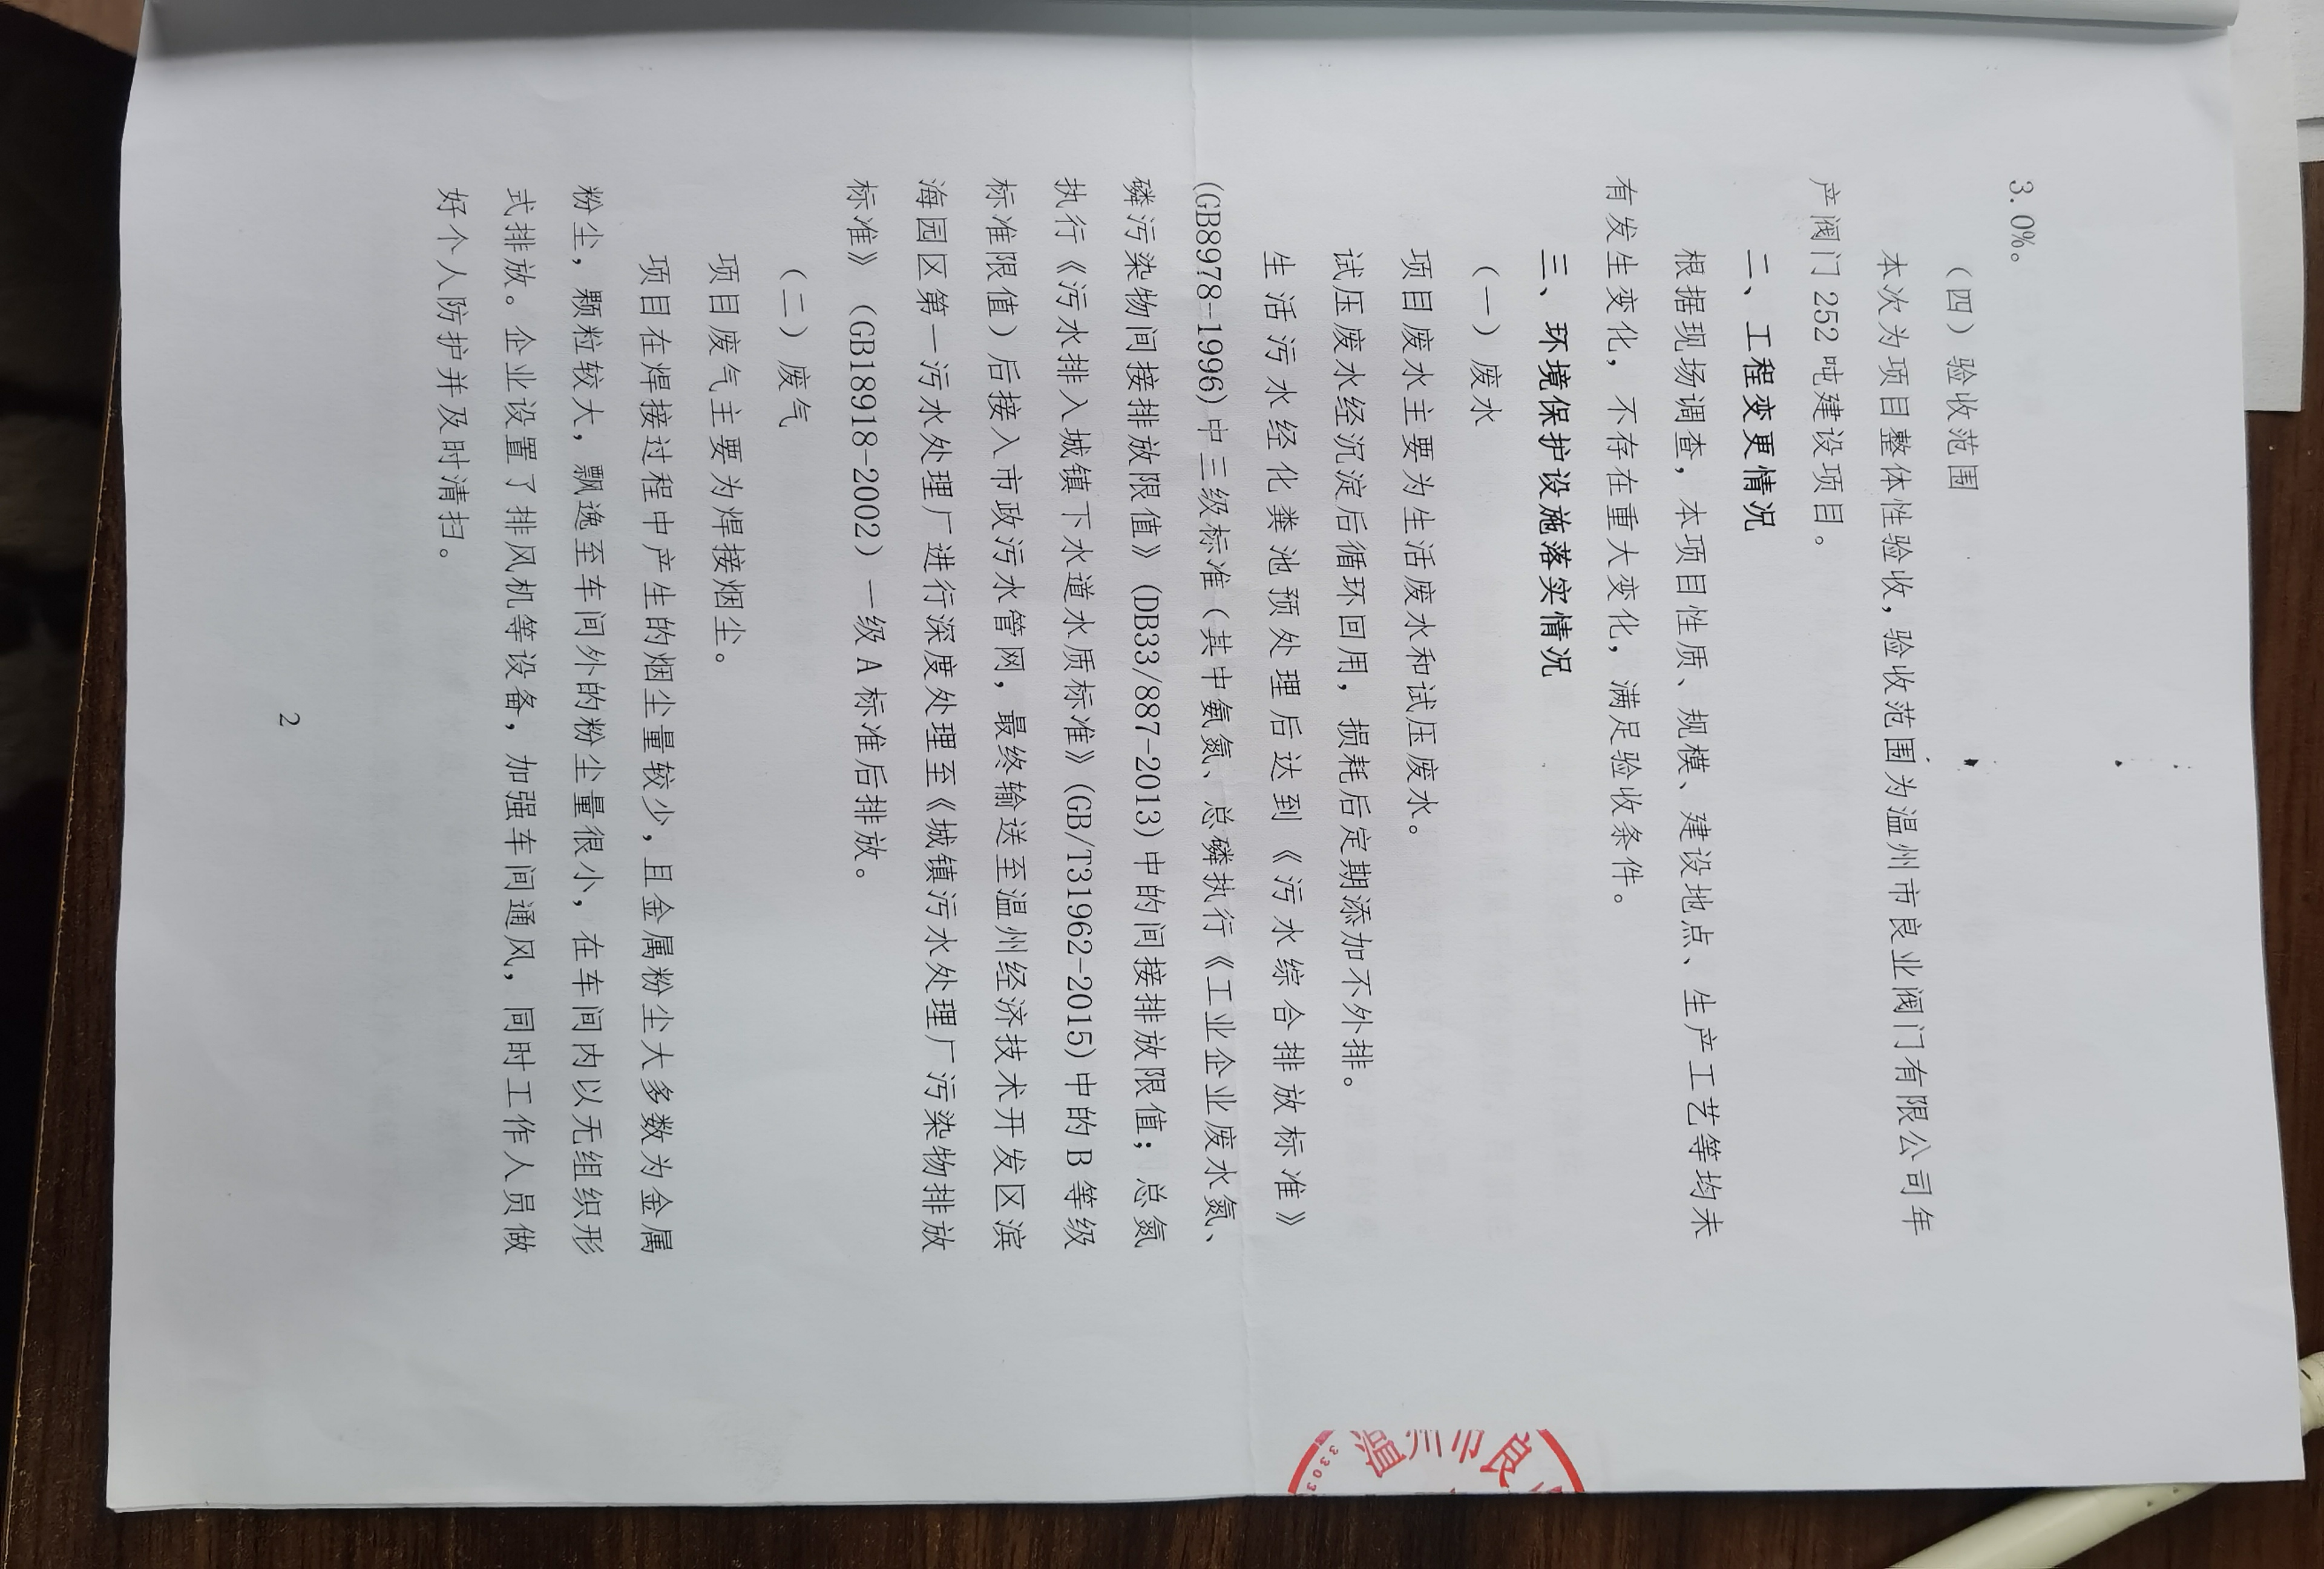 3.0%。
（四）验收范围
本次为项目整体性验收，验收范围为温州市良业阀门有限公司年
产阀门 252 吨建设项目。
二、工程变更情况
根据现场调查，本项目性质、规模、建设地点、生产工艺等均未
有发生变化，不存在重大变化，满足验收条件。
三、环境保护设施落实情况
（一）废水
项目废水主要为生活废水和试压废水。
试压废水经沉淀后循环回用，损耗后定期添加不外排。
生活污水经化粪池预处理后达到《污水综合排放标准》
(GB8978-1996)中三级标准（其中氨氮、总磷执行《工业企业废水氮、
磷污染物间接排放限值》(DB33/887-2013)中的间接排放限值；总氮
执行《污水排入城镇下水道水质标准》(GB/T31962-2015)中的 B 等级
标准限值）后接入市政污水管网，最终输送至温州经济技术开发区滨
海园区第一污水处理厂进行深度处理至《城镇污水处理厂污染物排放
标准》（GB18918-2002）一级 A 标准后排放。
（二）废气
项目废气主要为焊接烟尘。
项目在焊接过程中产生的烟尘量较少，且金属粉尘大多数为金属
粉尘，颗粒较大，飘逸至车间外的粉尘量很小，在车间内以无组织形
式排放。企业设置了排风机等设备，加强车间通风，同时工作人员做
好个人防护并及时清扫。
2
温州市良
3303